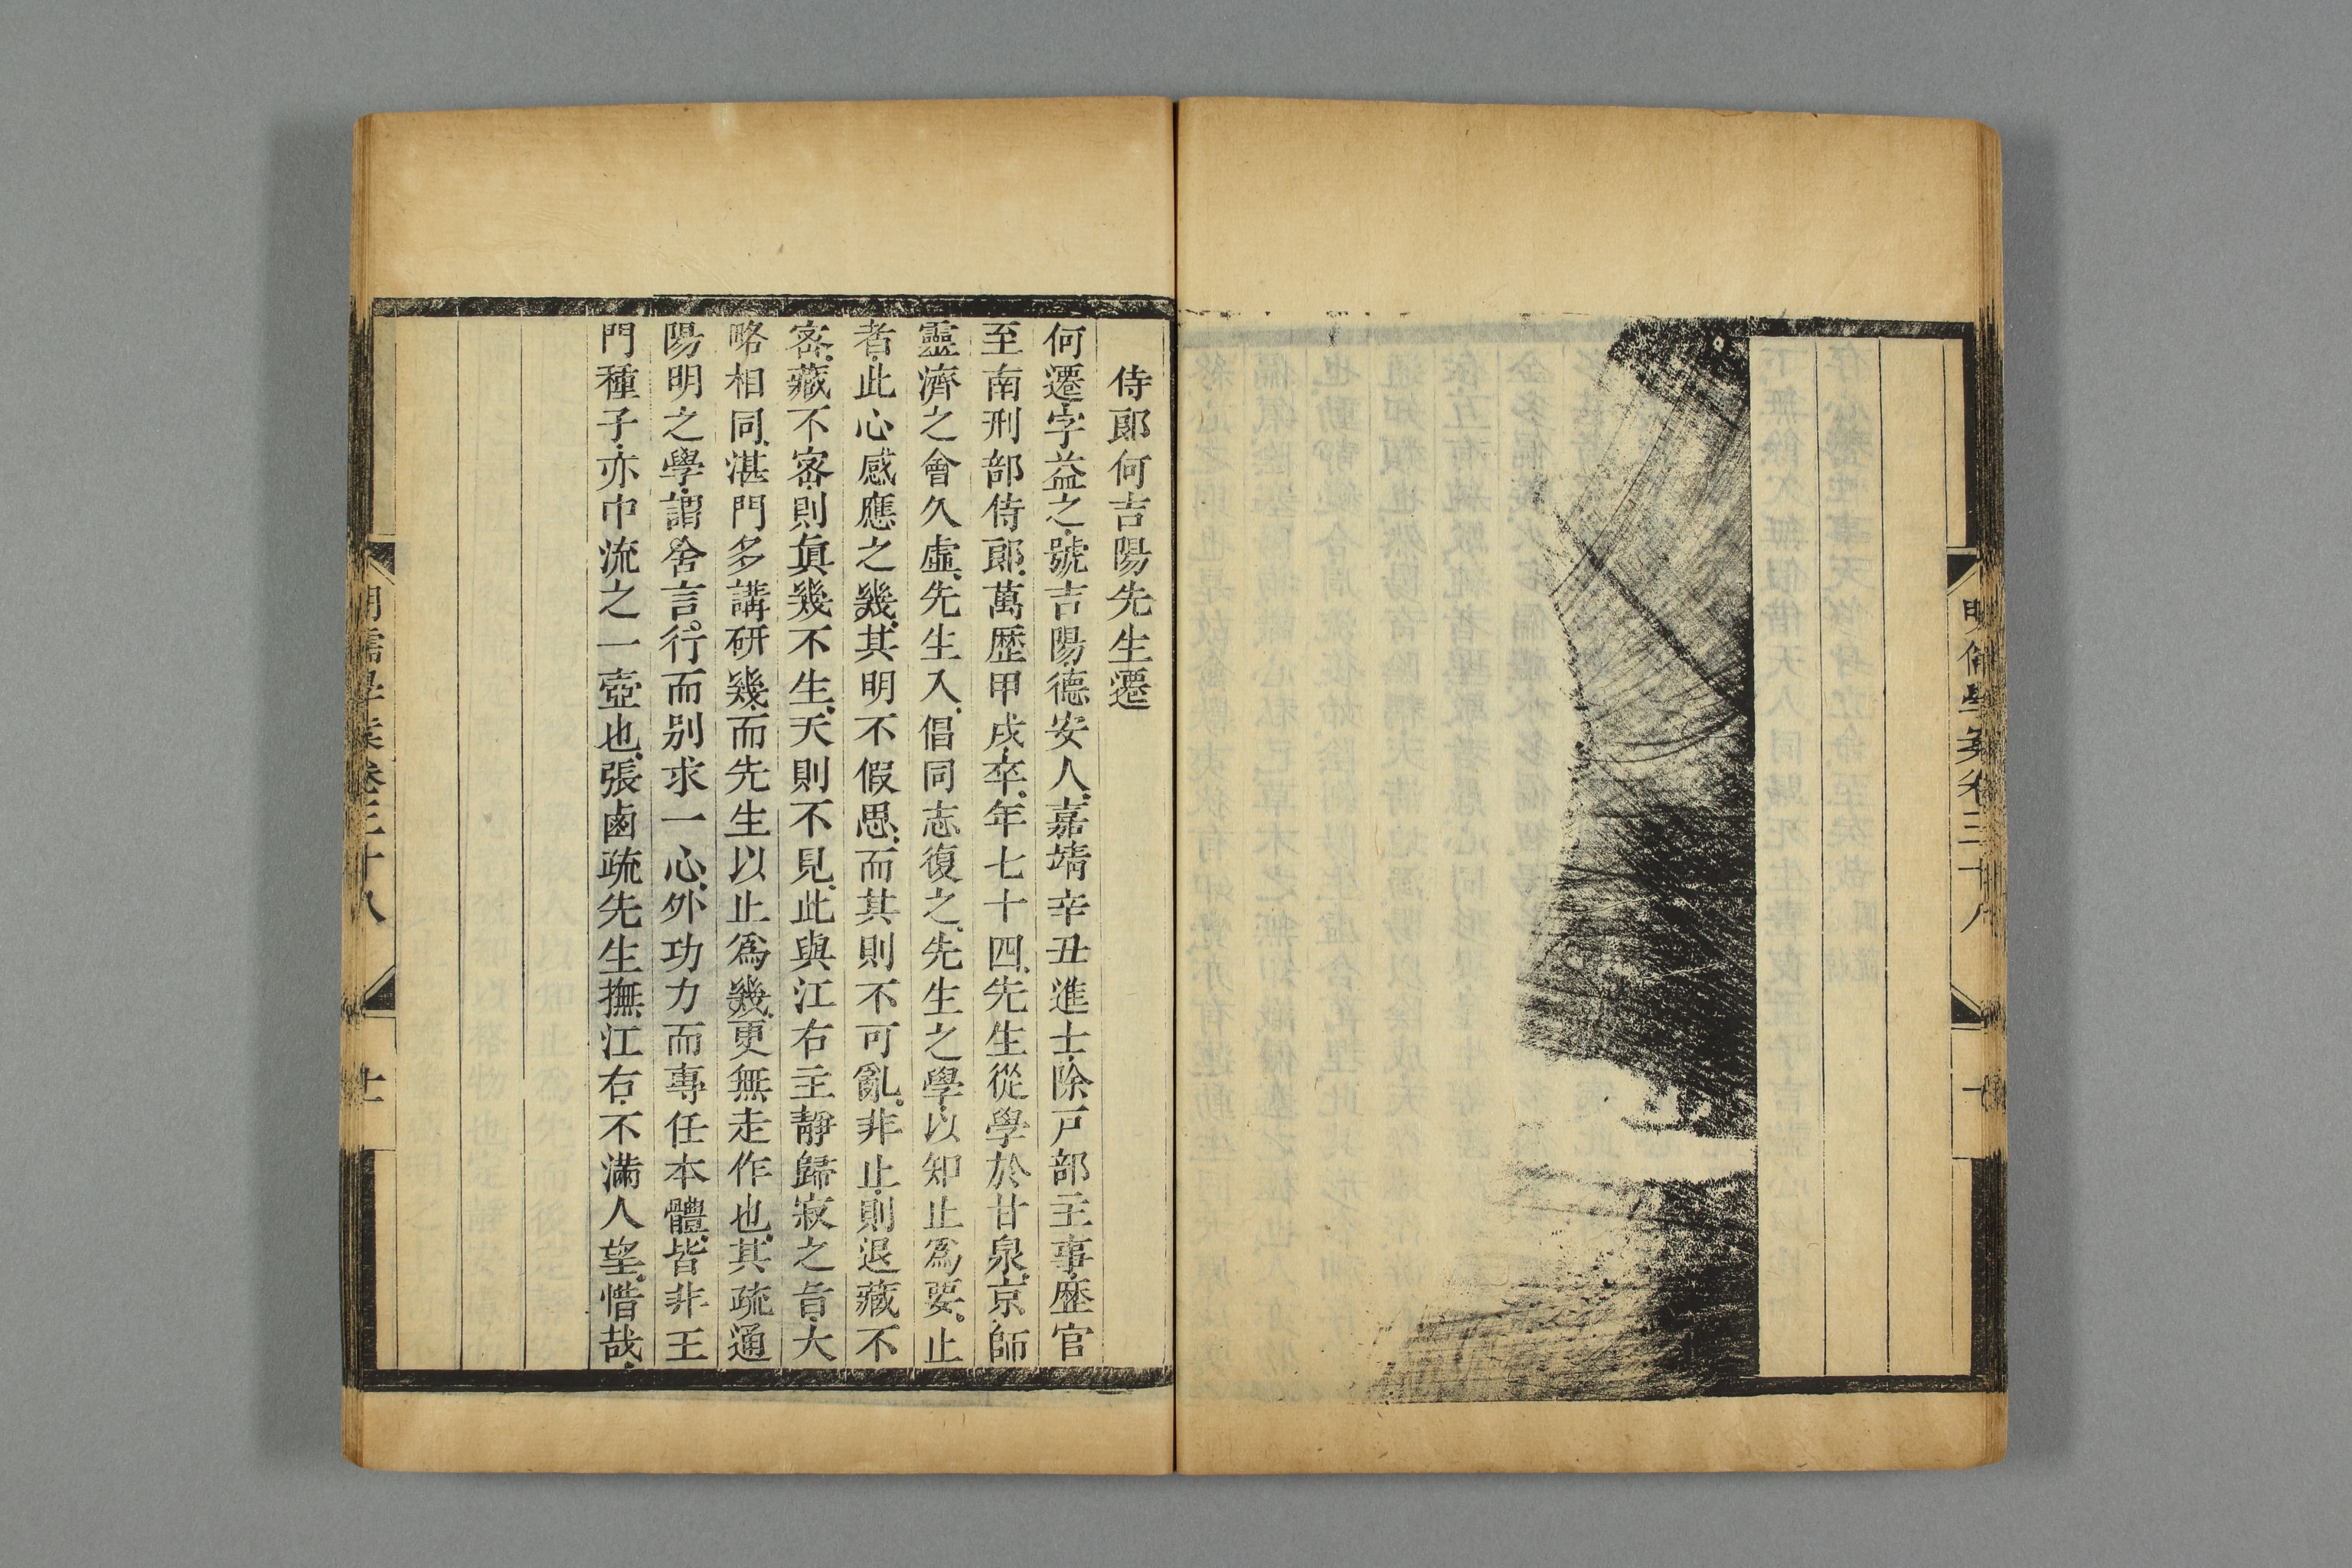 侍郎何吉陽先生遷
何遷字益之號吉陽德安人嘉靖辛丑進士除戸部主事歷官
至南刑部侍郎萬歷甲戌卒年七十四先生從學於甘泉京師
靈濟之會久虛先生入倡同志復之先生之學以知止爲要止
者此心感應之幾其明不假思而其則不可亂非止則退藏不
密藏不密則眞幾不生天則不見此與江右主靜歸寂之旨大
略相同湛門多講研幾而先生以止爲幾更無走作也其疏通
陽明之學謂舍言行而别求一心外功力而專任本體皆非王
門種子亦中流之一壺也張鹵疏先生撫江右不滿人望惜哉